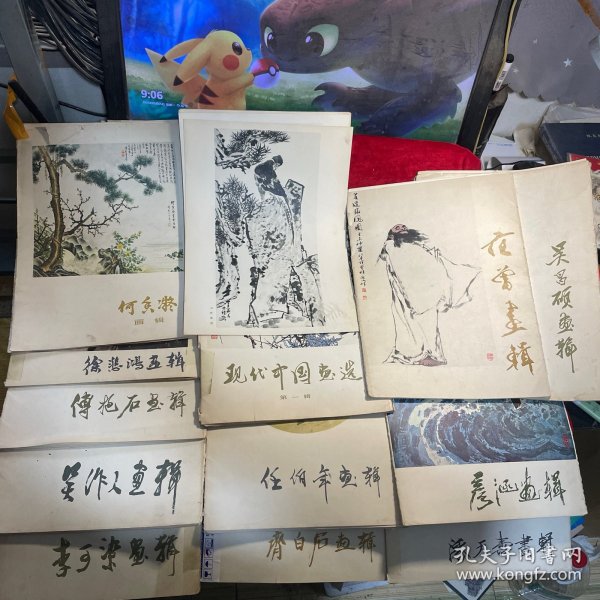 9:06
何香凝
画辑
范曾画辑
吴昌硕画辑
徐悲鸿画辑
现代中国画选
第一辑
傅抱石画辑
吴作人画辑
任伯年画辑
彦涵画辑
李可染画辑
齐白石画辑
孔夫子旧书网
www.kongfz.com